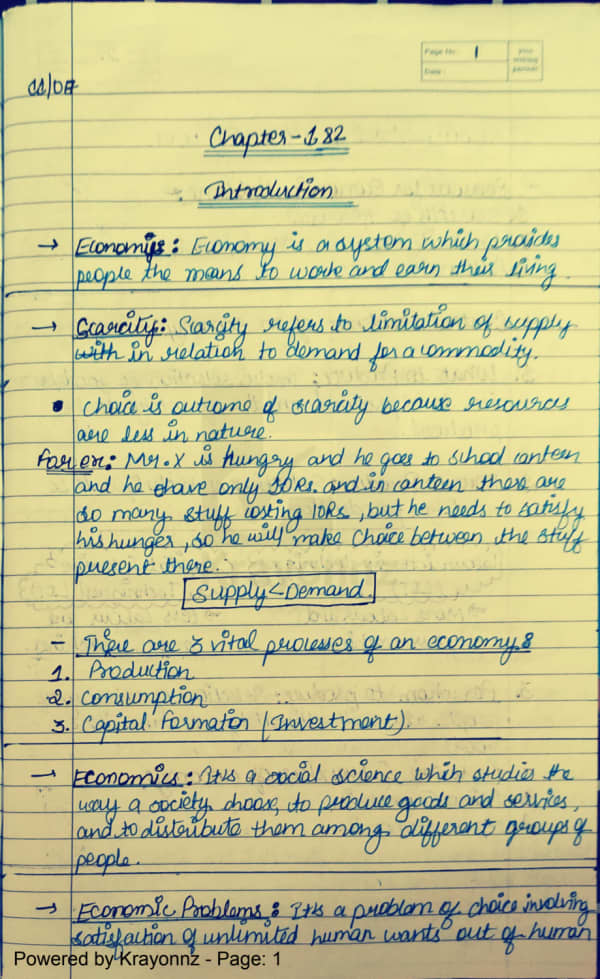 Page No. 1
Date:
your
writing
partner
Chapter-1&2
Introduction
→ Economics: Economy is a system which provides
people the means to work and earn their living.
→ Scarcity: Scarcity refers to limitation of supply
with in relation to demand for a commodity.
• Choice is outcome of scarcity because resources
are less in nature.
For ex: Mr. X is hungry and he goes to school canteen
and he have only 10Rs. and in canteen there are
so many stuff costing 10Rs, but he needs to satisfy
his hunger, so he will make choice between the stuff
present there.
Supply<Demand
- There are 3 vital processes of an economy:
1. Production
2. Consumption
3. Capital Formation (Investment).
→ Economics: It is a social science which studies the
way a society choose, to produce goods and services,
and to distribute them among different groups of
people.
→ Economic Problems: It is a problem of choice involving
satisfaction of unlimited human wants out of human
Powered by Krayonnz - Page: 1